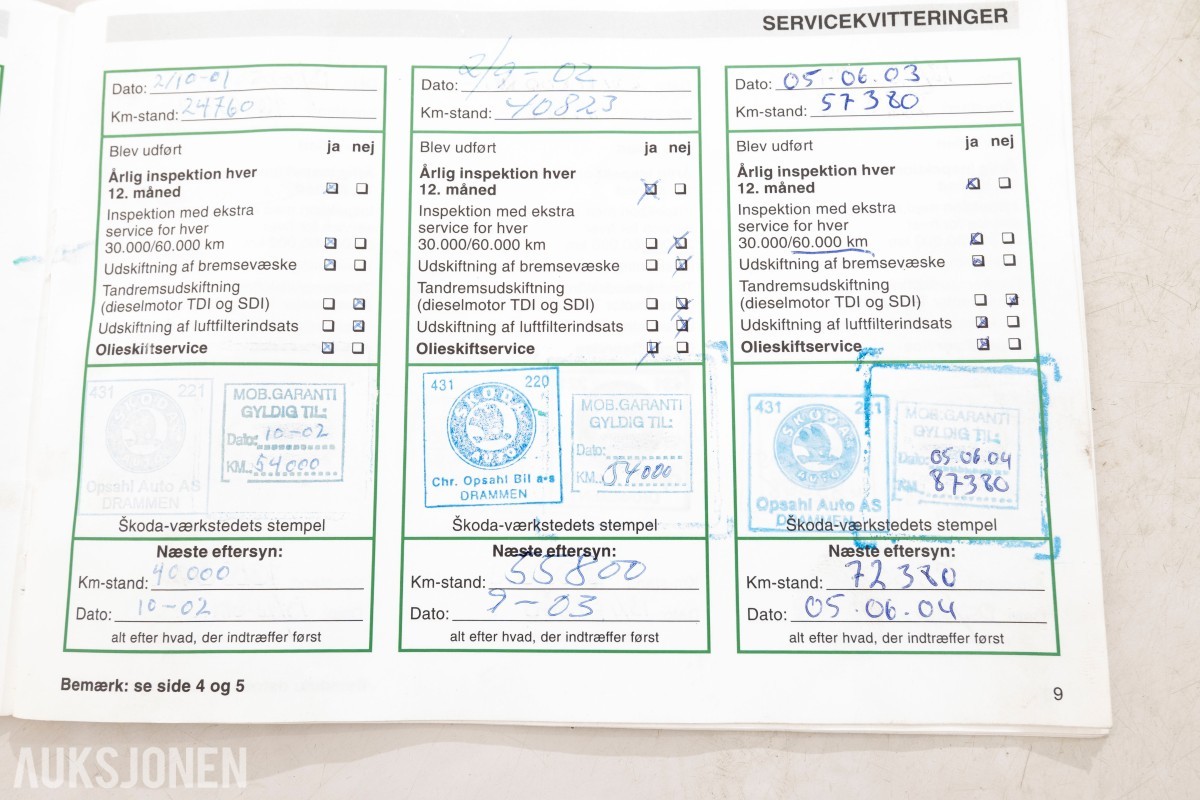 SERVICEKVITTERINGER
Dato: 2/10-01
Km-stand: 24760
Blev udført ja nej
Årlig inspektion hver
12. måned
Inspektion med ekstra
service for hver
30.000/60.000 km
Udskiftning af bremsevæske
Tandremsudskiftning
(dieselmotor TDI og SDI)
Udskiftning af luftfilterindsats
Olieskiftservice
431 221
ŠKODA
AUTO
Opsahl Auto AS
DRAMMEN
MOB.GARANTI
GYLDIG TIL:
Dato: 10-02
KM. 54000
Škoda-værkstedets stempel
Næste eftersyn:
Km-stand: 40000
Dato: 10-02
alt efter hvad, der indtræffer først
Dato: 2/9-02
Km-stand: 40823
Blev udført ja nej
Årlig inspektion hver
12. måned
Inspektion med ekstra
service for hver
30.000/60.000 km
Udskiftning af bremsevæske
Tandremsudskiftning
(dieselmotor TDI og SDI)
Udskiftning af luftfilterindsats
Olieskiftservice
431 220
ŠKODA
AUTO
Chr. Opsahl Bil a·s
DRAMMEN
MOB.GARANTI
GYLDIG TIL:
Dato:
KM. 54000
Škoda-værkstedets stempel
Næste eftersyn:
Km-stand: 55800
Dato: 9-03
alt efter hvad, der indtræffer først
Dato: 05.06.03
Km-stand: 57380
Blev udført ja nej
Årlig inspektion hver
12. måned
Inspektion med ekstra
service for hver
30.000/60.000 km
Udskiftning af bremsevæske
Tandremsudskiftning
(dieselmotor TDI og SDI)
Udskiftning af luftfilterindsats
Olieskiftservice
431 221
ŠKODA
AUTO
Opsahl Auto AS
DRAMMEN
MOB.GARANTI
GYLDIG TIL:
Dato: 05.06.04
KM. 87380
Škoda-værkstedets stempel
Næste eftersyn:
Km-stand: 72380
Dato: 05.06.04
alt efter hvad, der indtræffer først
Bemærk: se side 4 og 5
9
AUKSJONEN